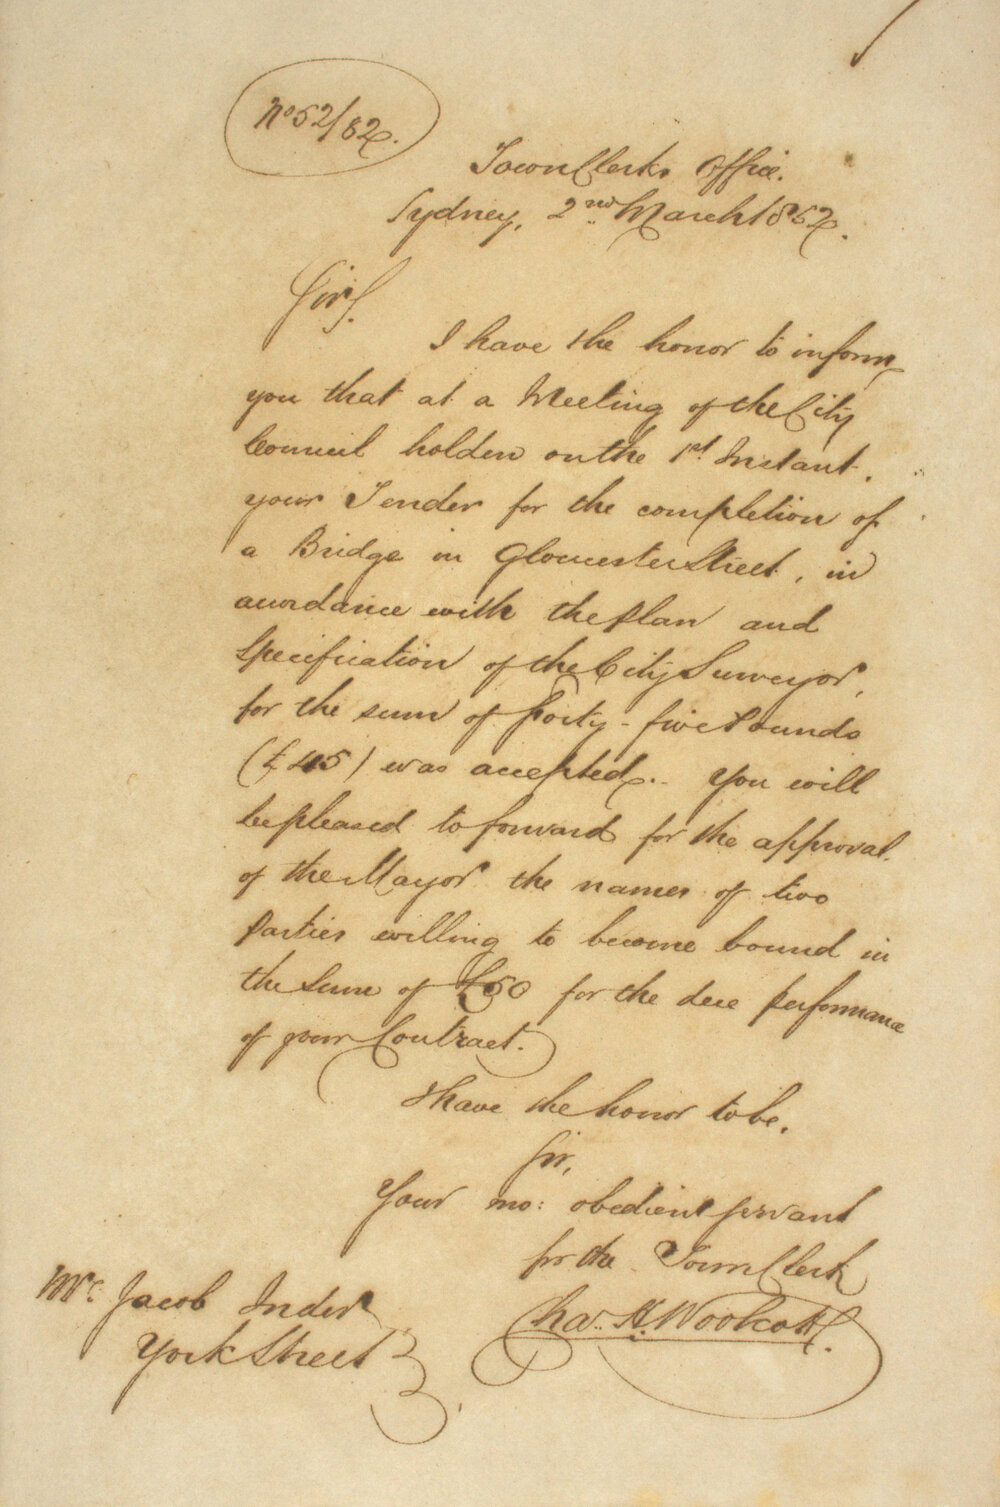 No 52/52.
Town Clerks Office.
Sydney, 2nd March 1852.
Sir,
I have the honor to inform
you that at a Meeting of the City
Council holden on the 1st Instant.
your Tender for the completion of
a Bridge in Gloucester Street, in
accordance with the plan and
Specification of the City Surveyor,
for the sum of forty-five Pounds
(£45) was accepted. You will
be pleased to forward for the approval
of the Mayor the names of two
Parties willing to become bound in
the Sum of £50 for the due performance
of your Contract.
I have the honor to be,
Sir,
Your mo: obedient servant
for the Town Clerk
Chas. H. Woolcott.
Mr. Jacob Inder
York Street